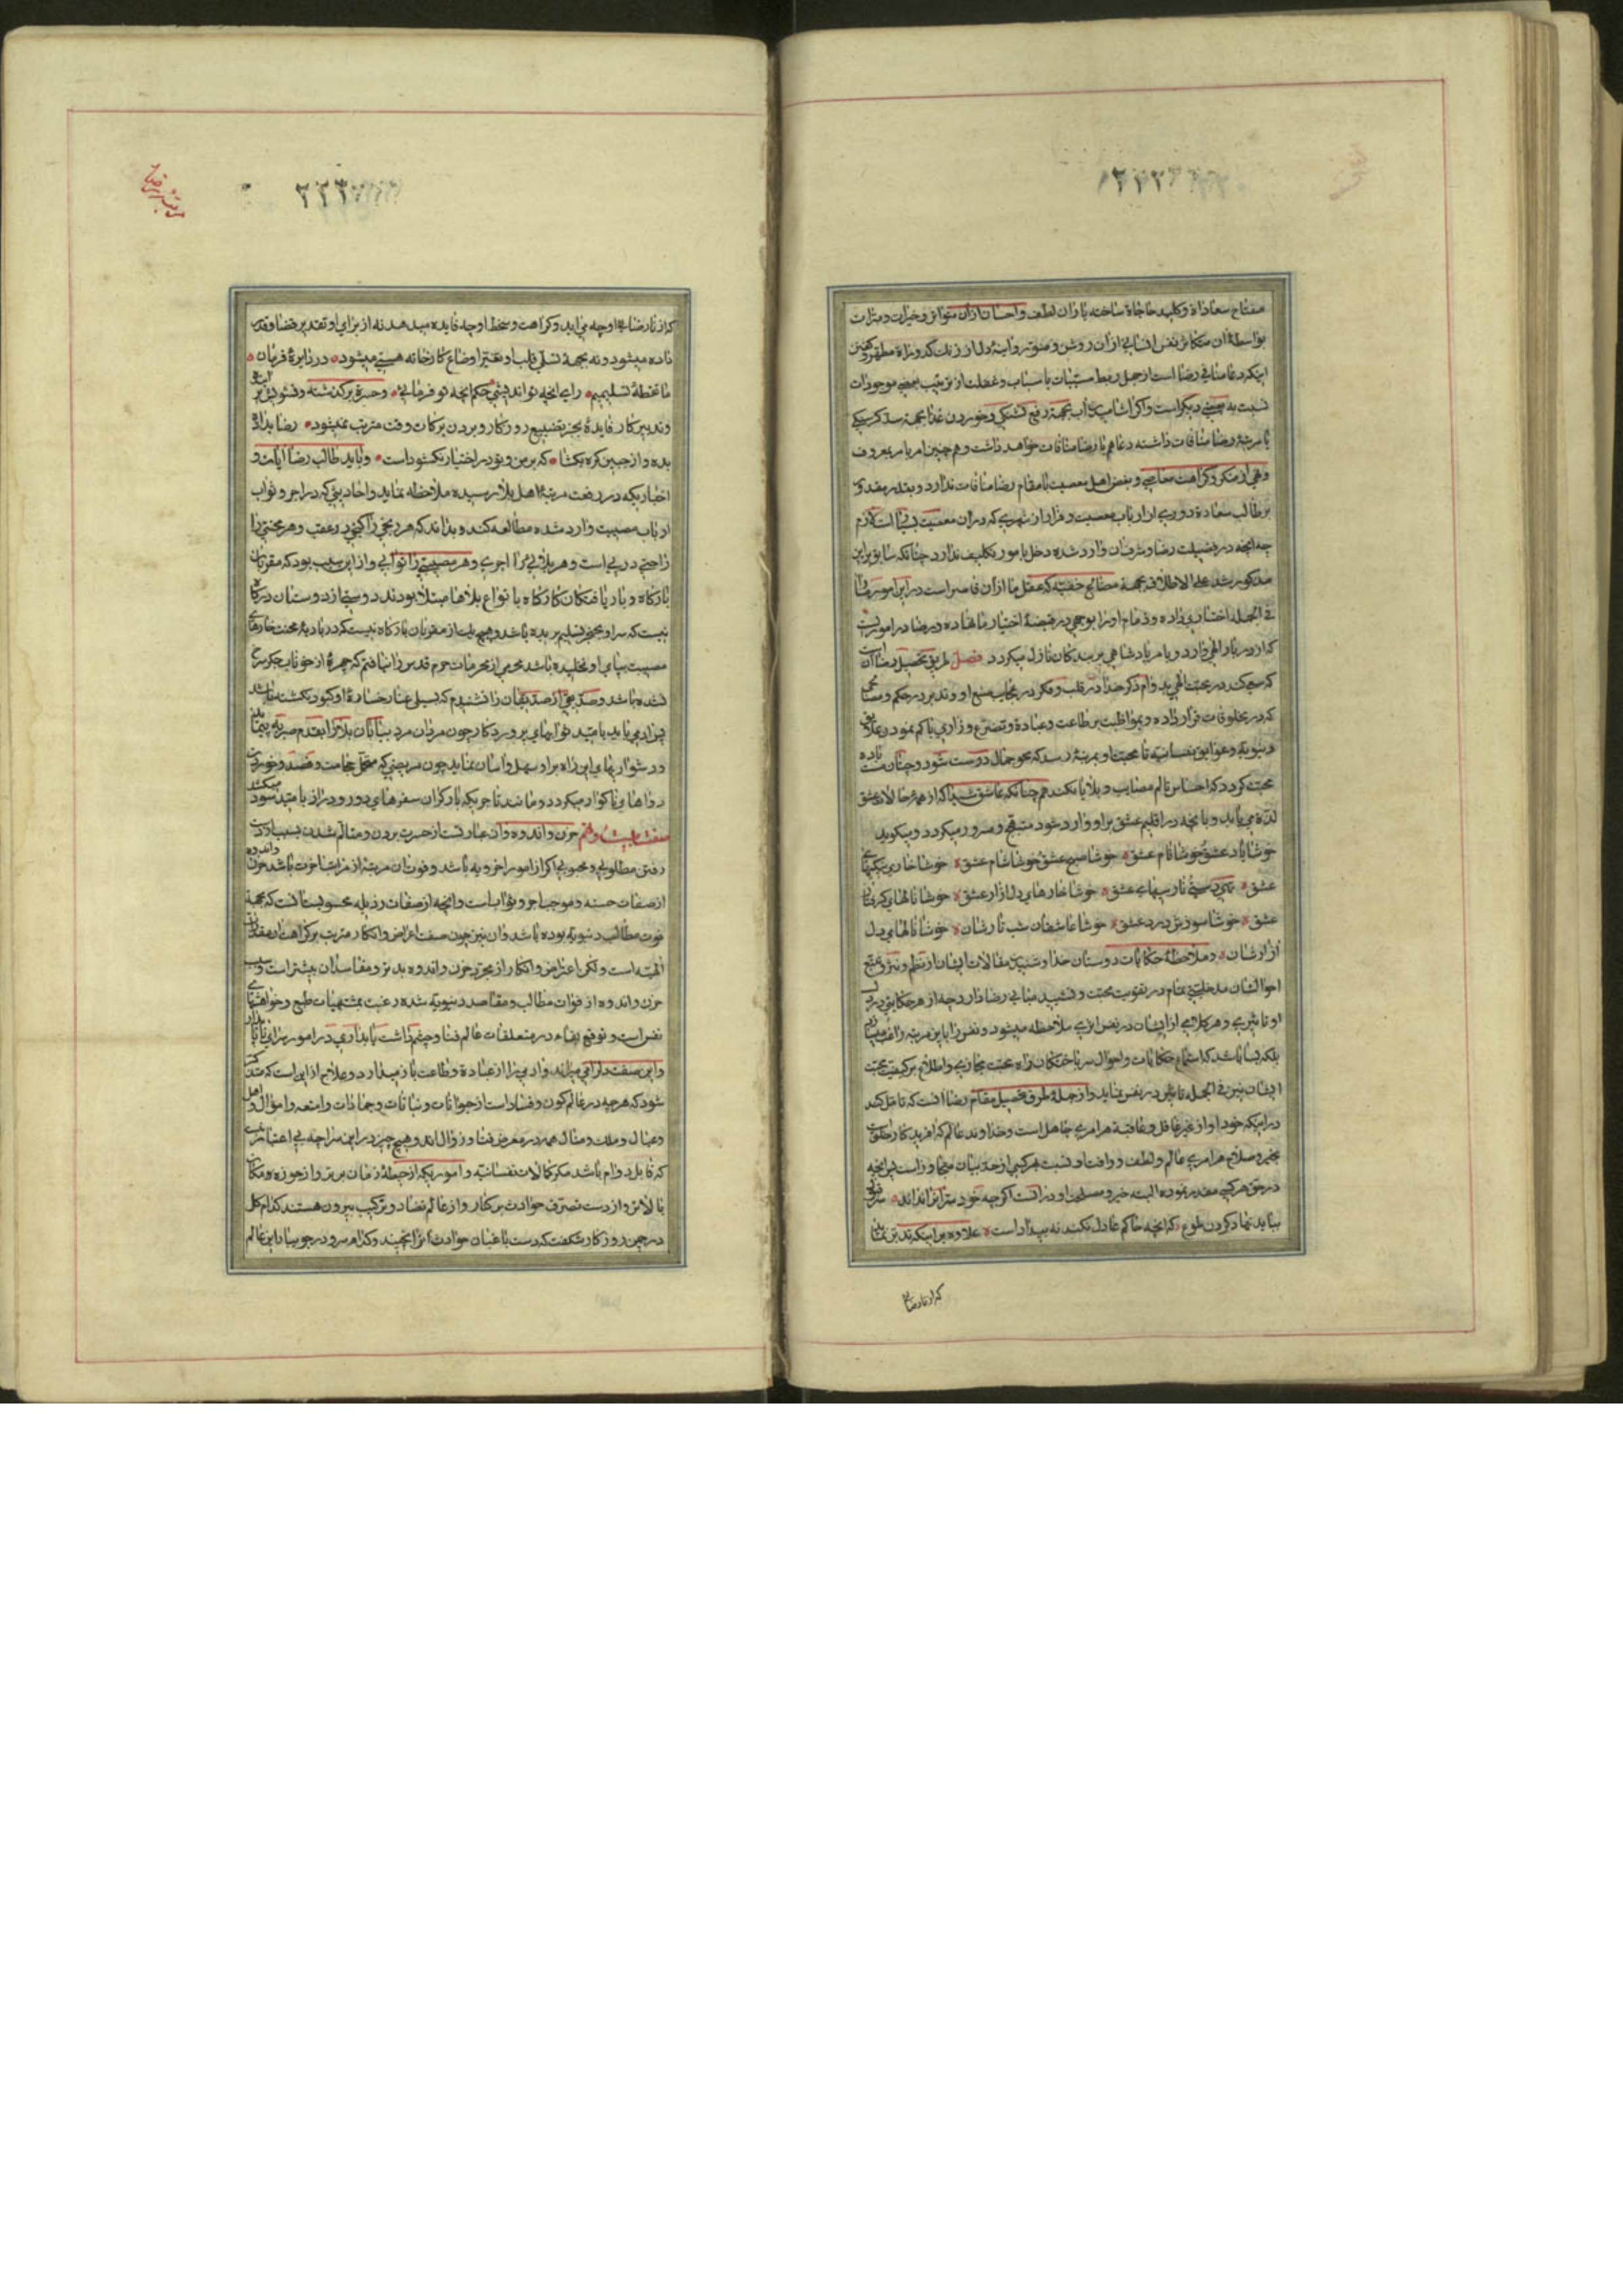 مفتاح سعادات و کلید حاجات ساخته باران لطف و احسان از آن متواتر و خیرات و مبرات
بواسطهٔ آن متکاثر نفس انسانی از آن روشن و منور و آینهٔ دل از زنك کدورات مطهر و همچنین
اینکه دعا منافی رضا است از جهل بربط مسببات باسباب و غفلت از ترتیب بعضی موجودات
نسبت به بعضی دیکر است و اکر آشامیدن آب بجهة رفع تشنکی و خوردن غذا بجهة سد کرسنکی
با مرتبهٔ رضا منافات داشته دعا هم با رضا منافات خواهد داشت و همچنین امر بامر بمعروف
و نهی از منکر و کراهت معاصی و بغض اهل معصیت با مقام رضا منافات ندارد و بقدر مقدور
بر طالب سعادة دوری از ارباب معصیت و فرار از شهری که در آن معصیت است لازم
چه آنچه در فضیلت رضا و شرف آن وارد شده دخل بامور تکلیف ندارد چنانکه سابق بر این
مذکور شد علی الاطلاق بجهة مصالح خفیه که عقل ما از آن قاصر است در این امور ما را
فی الجمله اختیاری داده و زمام او را بوجهی در قبضهٔ اختیار ما نهاده و رضا در اموریست
که از دربار الهی وارد و بامر پادشاهی بر بندکان نازل میکردد فصل طریق تحصیل رضا آن است
که سعی کند در محبت الهی بدوام ذکر خدا در قلب و فکر در عجایب صنع او و تدبر در حکم و مصالحی
که در مخلوقات قرار داده و بمواظبت بر طاعت و عبادة و تضرع و زاری با کم نمودن علایق
دنیویه و عوایق نفسانیه تا محبت او بمرتبهٔ رسد که محو جمال دوست شود و چنان مست بادهٔ
محبت کردد که احساس الم مصایب و بلایا نکند همچنانکه عاشق شیدا که از همهٔ حالات عشق
لذة می یابد و بآنچه در اقلیم عشق بر او وارد شود مبتهج و مسرور میکردد و میکوید
خوشا یاد عشق خوشا نام عشق خوشا صبح عشق خوشا شام عشق خوشا خاری
عشق خوشا خارهای دل آزار عشق خوشا نالهای
عشق خوشا سوزش درد عشق خوشا عاشقان شب تارشان خوشا نالهای دل
آزارشان و ملاحظهٔ حکایات دوستان خدا و شنیدن مقالات ایشان از نظم و نثر و تتبع
احوالشان مدخلیتی تمام در تقویت محبت و تشیید مبانی رضا دارد چه از هر حکایتی در دل
او تأثیری و هر کلامی از ایشان در نفس اثری ملاحظه میشود و نفس را باین مرتبه راغب میسازد
بلکه بسا باشد که استماع حکایات و احوال سرباختکان راه محبت مجازی و اطلاع بر کیفیت محبت
ایشان نیز فی الجمله تأثیر در نفس نماید و از جملهٔ طرق تحصیل مقام رضا آنست که تأمل کند
در اینکه خود او از خیر غافل و بعاقبة هر امری جاهل است و خداوند عالم که آفریدکار خلق است
بخیر و صلاح هر امری عالم و لطف و رأفت او نسبت بهر کسی از حد بیان متجاوز است پس آنچه
در حق هر کسی مقدر نموده البته خیر و مصلحت او در آنست اکرچه خود سر آن را نداند
بباید نهاد کردن طوع که آنچه حاکم عادل بکند نه بیداد است علاوه بر اینکه تدبر نماید
که از نارضای
مرتبهٔ رضا
۲۲۳
که از نارضائی او چه می آید و کراهت و سخط او چه فایده میدهد نه از برای او تقدیر قضا و قدر
داده میشود و نه بجهة تسلی قلب او تغییر اوضاع کارخانه هستی میشود در دایرهٔ فرمان
ما نقطهٔ تسلیمیم رای آنچه تو اندیشی حکم آنچه تو فرمائی و حسرة بر کذشته و تشویش بر آینده
و تدبیر کار فایدهٔ بجز تضییع روزکار و بردن برکات وقت مترتب نمیشود رضا بداده
بده وز جبین کره بکشا که بر من و تو در اختیار نکشوداست و باید طالب رضا آیات و
اخباریکه در رفعت مرتبهٔ اهل بلا رسیده ملاحظه نماید و احادیثی که در اجر و ثواب
ارباب مصیبت وارد شده مطالعه کند و بداند که هر رنجی را کنجی در عقب و هر محنتی را
راحتی در پی است و هر بلائی را اجری و هر مصیبتی را ثوابی و از این سبب بود که مقربان
بارکاه و بار یافتکان کارکاه بانواع بلاها مبتلا بودند دوستی از دوستان درکاه
نیست که سر او بخنجر تسلیم بریده نباشد و هیچ یك از مقربان بارکاه نیست که در بادیهٔ محنت خارهای
مصیبت بپای او نخلیده باشد محرمی از محرمان حرم قدس را نیافتم که چهرهٔ از خوناب جکر رنکین
نشده باشد و صدیقی از صدیقان را نشنیدم که بسیلی عنا رخسارهٔ او کبود نکشته باشد
پس آدمی باید بامید ثوابهای پروردکار چون مردان مرد بیابان بلا را بقدم صبر پیماید
و دشواریهای این راه بر او سهل و آسان نماید چون مریضی که متحمل حجامت و فصد و خوردن
دواهای ناکوار میکردد و مانند تاجریکه بار کران سفرهای دور و دراز بامید سود میکشد
صفت بیست و نهم حزن و اندوه و آن عبارتست از حسرت بردن و متألم شدن بسبب از دست
رفتن مطلوبی و محبوبی اکر از امور اخرویه باشد و فوت آن مرتبهٔ از مراتب آخرت باشد حزن و اندوه
از صفات حسنه و موجب اجر و ثواب است و آنچه از صفات رذیله محسوبست آنست که بجهة
فوت مطالب دنیویه بوده باشد و آن نیز چون صفت اعراض و انکار مترتب بر کراهت از مقدرات
الهیه است و لکن اعتراض و انکار از مجرد حزن و اندوه بدتر و مفاسد آن بیشتر است و سبب
حزن و اندوه از فوات مطالب و مقاصد دنیویه شده رغبت بمشتهیات طبع و خواهشهای
نفس است و توقع بقاء در متعلقات عالم فنا و چشم داشت پایداری در امور سرای ناپایدار
و این صفت دل را می میراند و آدمی را از عبادة و طاعت باز میدارد و علاج آن این است که متذکر
شود که هرچه در عالم کون و فساد است از حیوانات و نباتات و جمادات و امتعه و اموال و اهل
و عیال و ملك و منال همه در معرض فنا و زوال اند و هیچ چیز در این سراچه بی اعتبار نیست
که قابل دوام باشد مکر کمالات نفسانیه و اموریکه از حیطهٔ زمان برتر و از حوزه مکان
بالاتر و از دست تصرف حوادث برکنار و از عالم تضاد و ترکیب بیرون هستند کدام کل
در چمن روزکار شکفت که دست باغبان حوادث آنرا نچیند و کدام سرو در جویبار این عالم